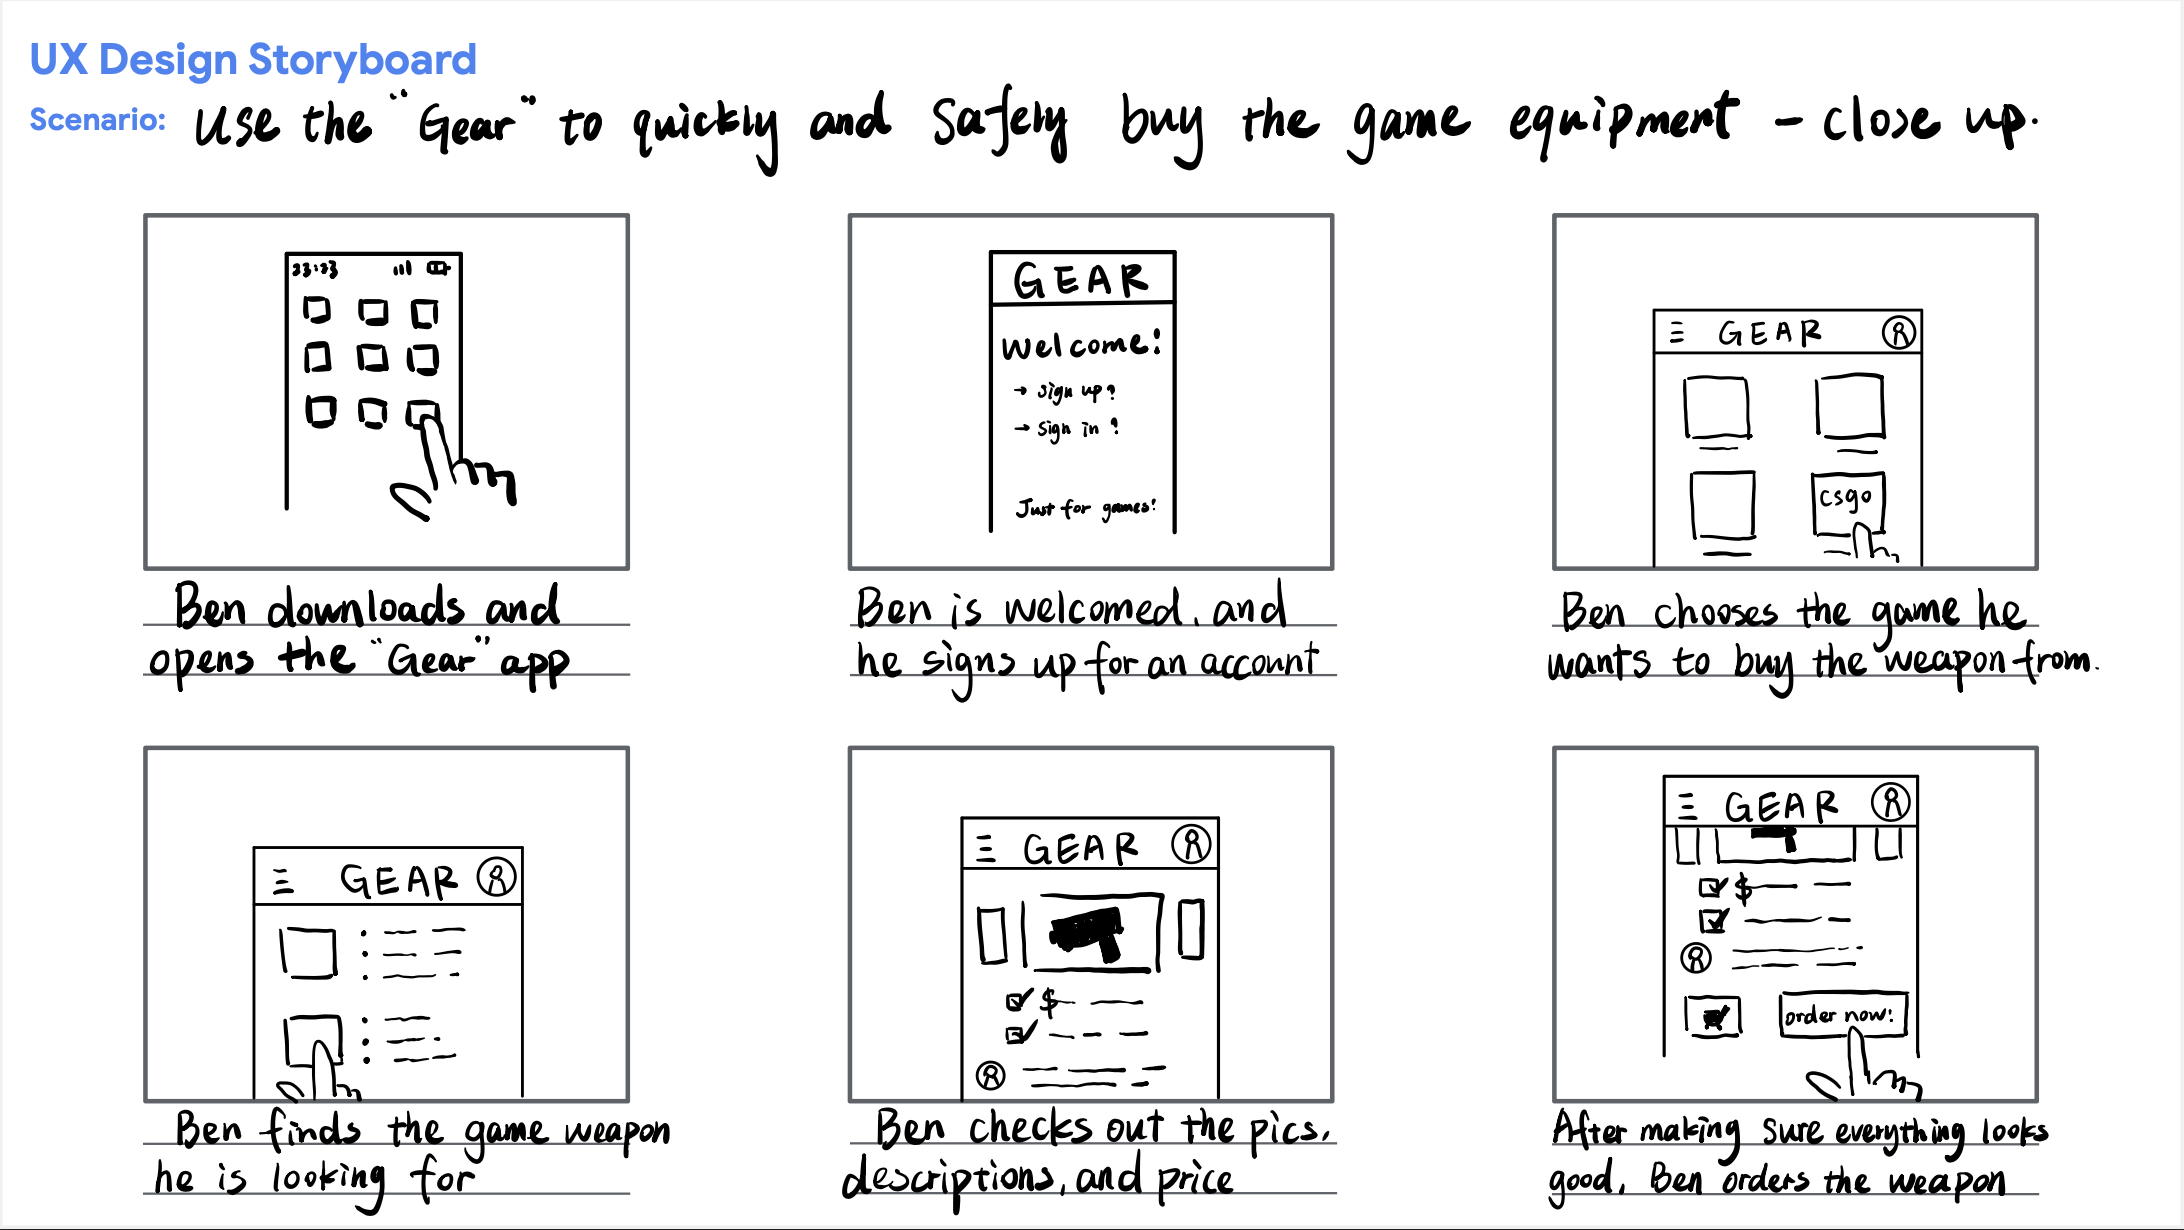 UX Design Storyboard
Scenario: Use the "Gear" to quickly and safely buy the game equipment - close up.
23:23
Ben downloads and
opens the "Gear" app
GEAR
Welcome!
→ sign up?
→ sign in?
Just for games!
Ben is welcomed, and
he signs up for an account
GEAR
csgo
Ben chooses the game he
wants to buy the weapon from.
GEAR
Ben finds the game weapon
he is looking for
GEAR
$
Ben checks out the pics,
descriptions, and price
GEAR
$
order now!
After making sure everything looks
good, Ben orders the weapon